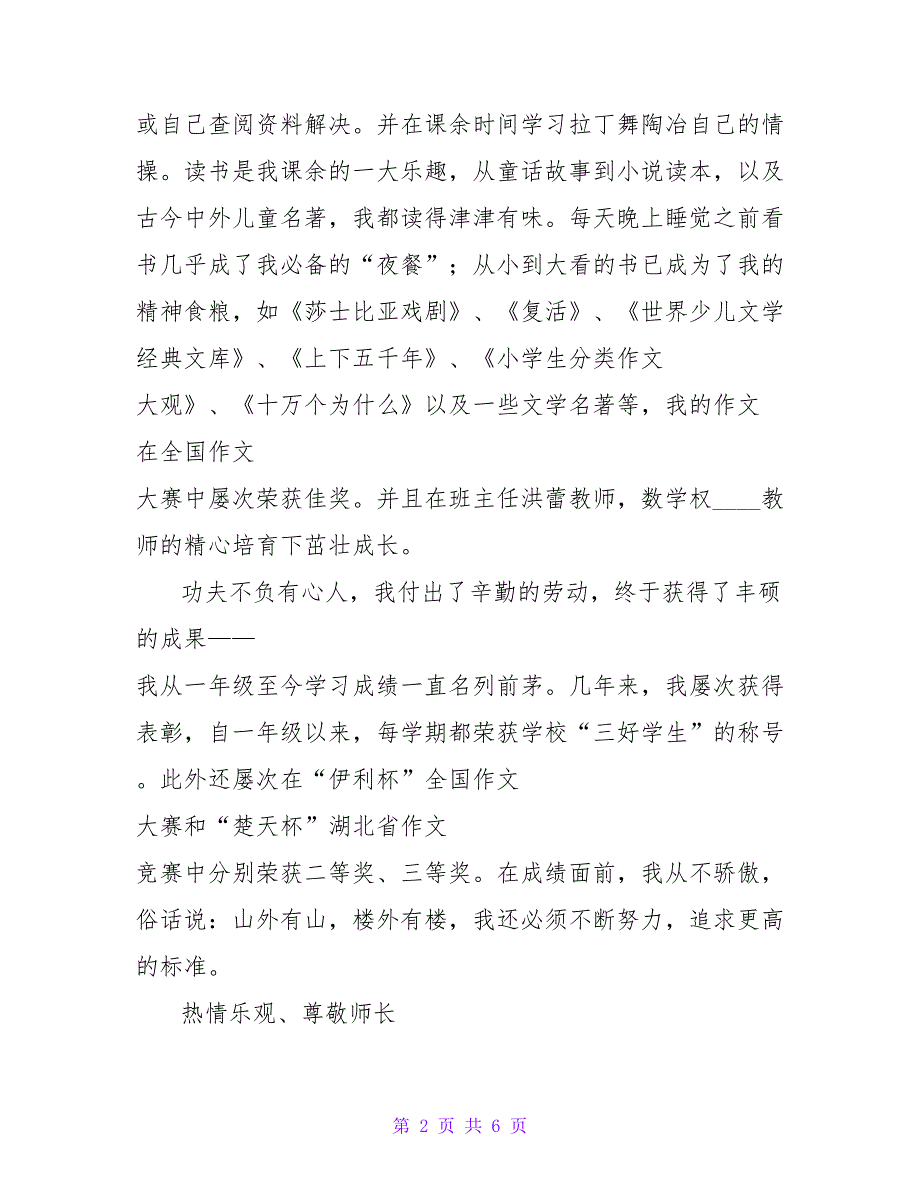 或自己查阅资料解决。并在课余时间学习拉丁舞陶冶自己的情
操。读书是我课余的一大乐趣，从童话故事到小说读本，以及
古今中外儿童名著，我都读得津津有味。每天晚上睡觉之前看
书几乎成了我必备的“夜餐”；从小到大看的书已成为了我的
精神食粮，如《莎士比亚戏剧》、《复活》、《世界少儿文学
经典文库》、《上下五千年》、《小学生分类作文
大观》、《十万个为什么》以及一些文学名著等，我的作文
在全国作文
大赛中屡次荣获佳奖。并且在班主任洪蕾教师，数学权____教
师的精心培育下茁壮成长。
功夫不负有心人，我付出了辛勤的劳动，终于获得了丰硕
的成果——
我从一年级至今学习成绩一直名列前茅。几年来，我屡次获得
表彰，自一年级以来，每学期都荣获学校“三好学生”的称号
。此外还屡次在“伊利杯”全国作文
大赛和“楚天杯”湖北省作文
竞赛中分别荣获二等奖、三等奖。在成绩面前，我从不骄傲，
俗话说：山外有山，楼外有楼，我还必须不断努力，追求更高
的标准。
热情乐观、尊敬师长
第 2 页 共 6 页